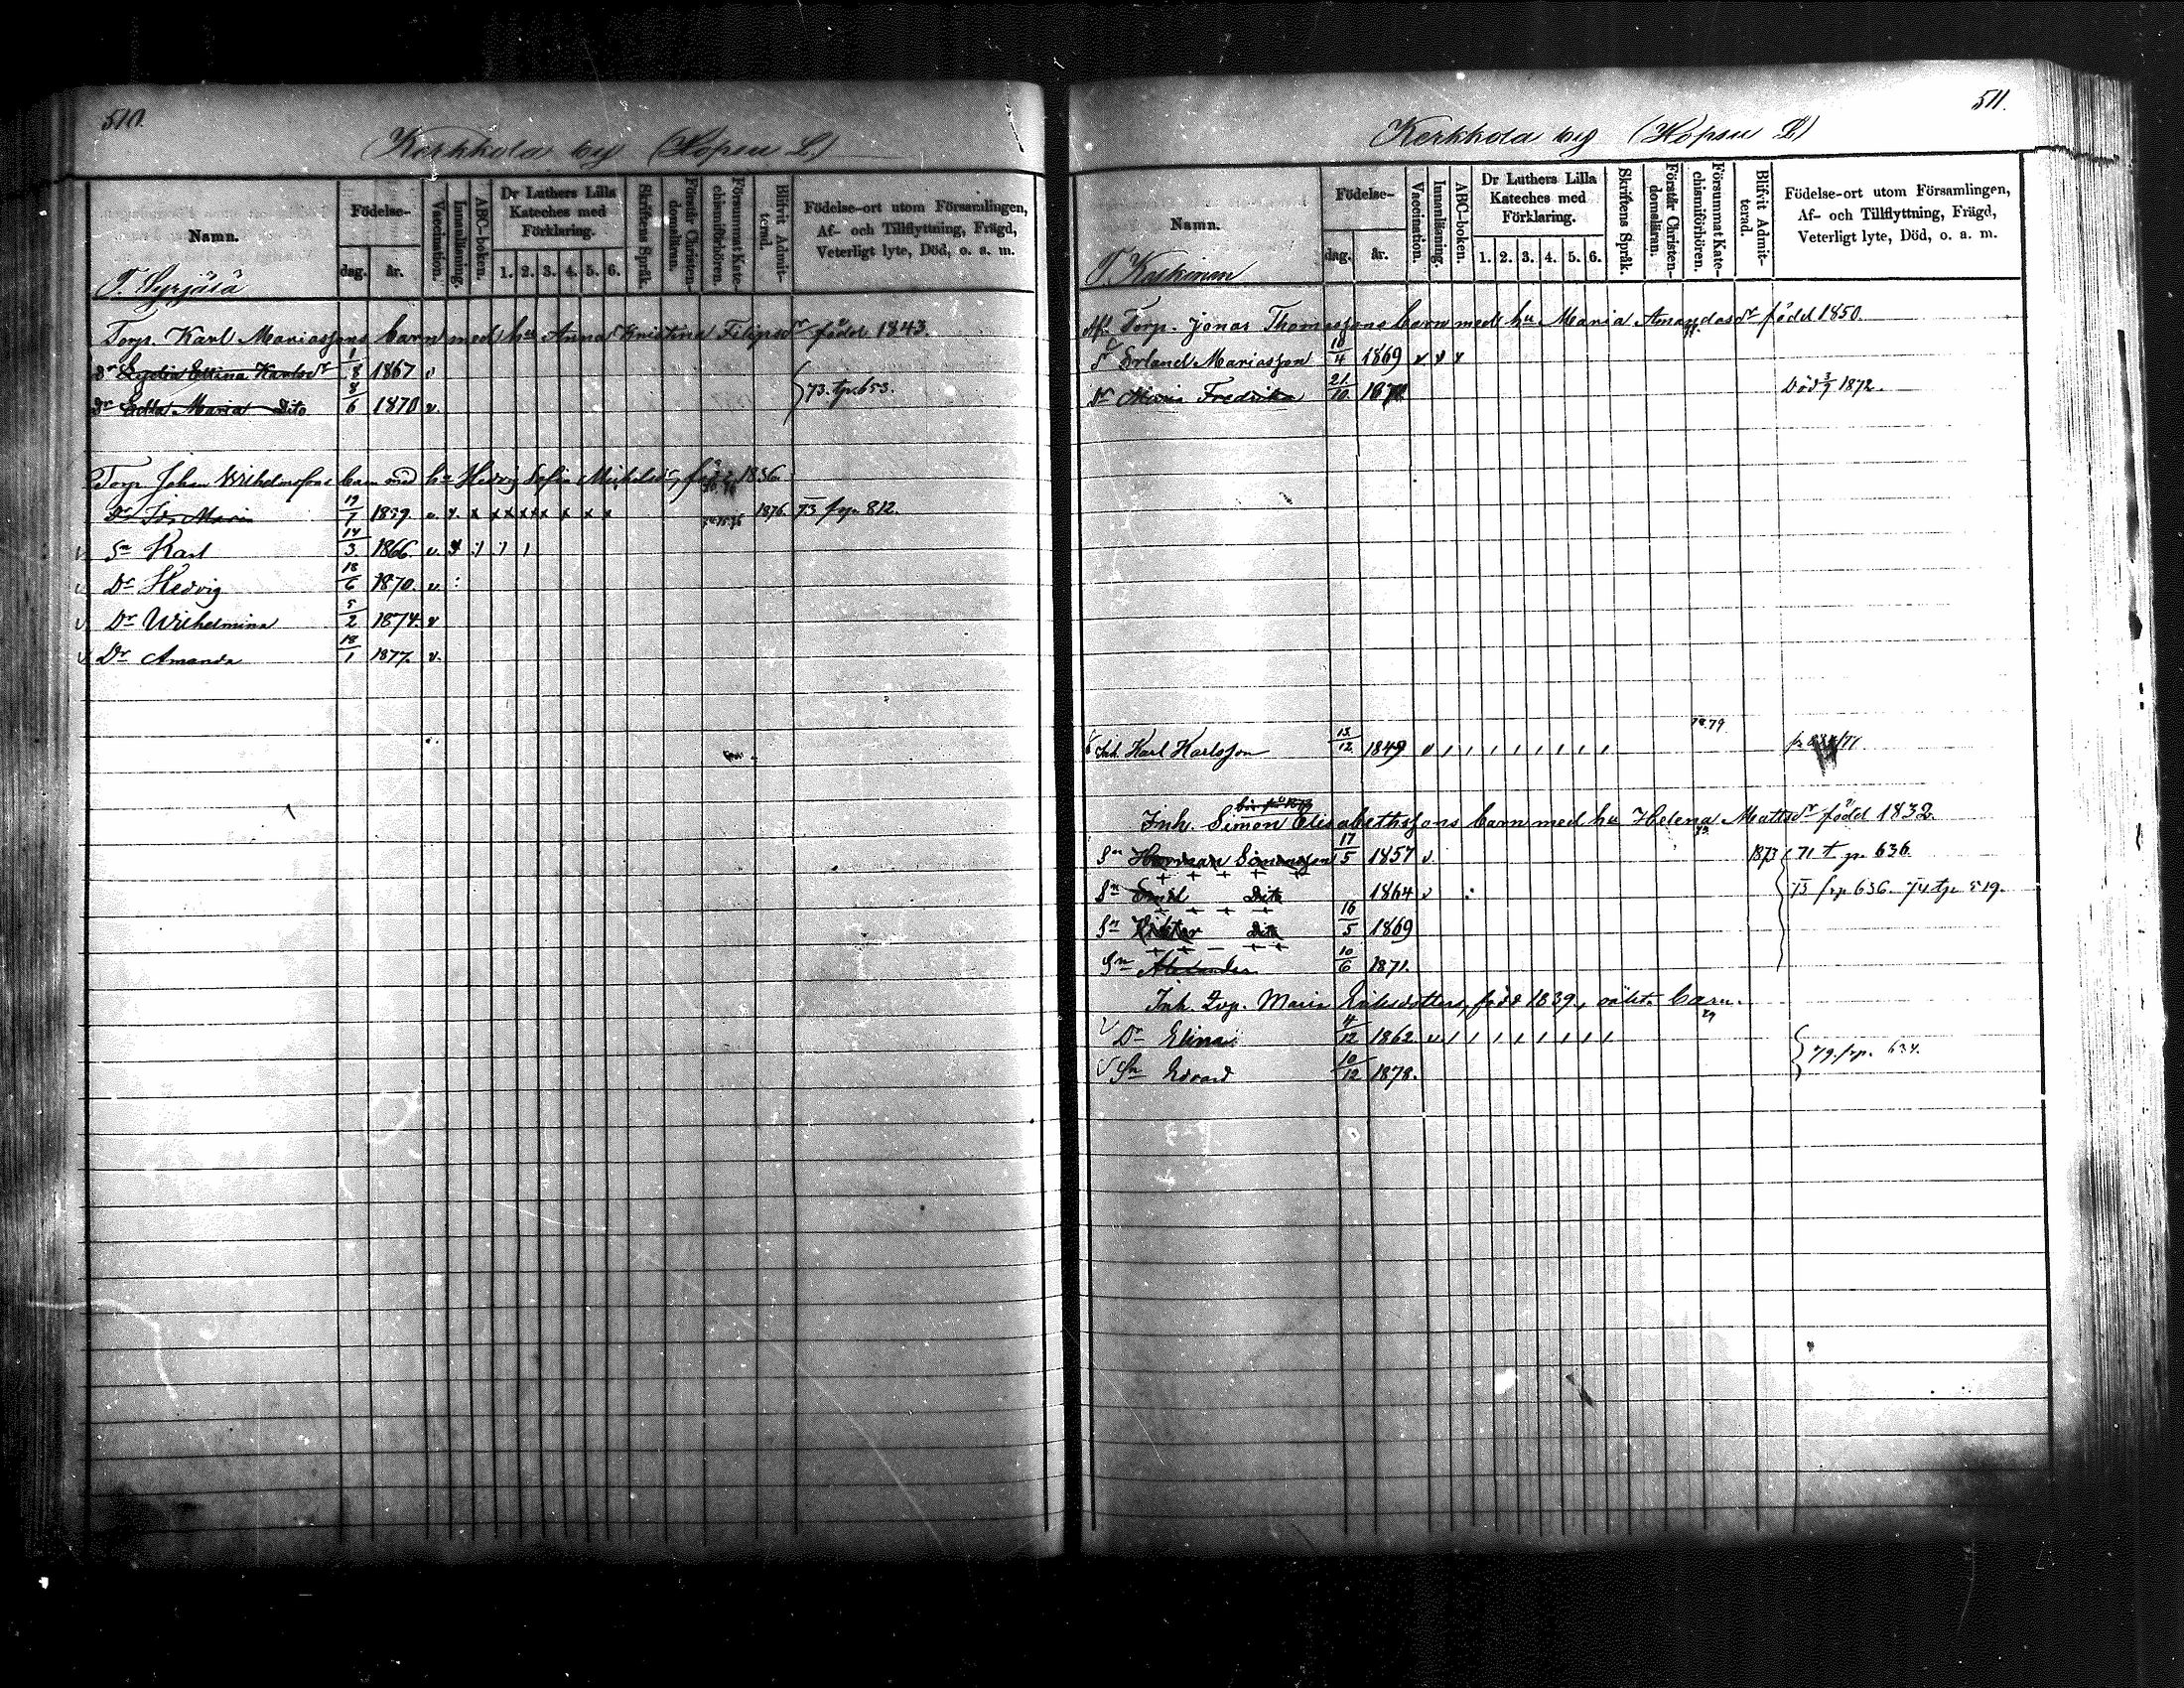 510.
Kerkkola by (Hopsu L.)
Namn.
Födelse-
dag.
år.
Vaccination.
Innanläsning.
ABC-boken.
Dr Luthers Lilla Kateches med Förklaring.
1. 2. 3. 4. 5. 6.
Skriftens Språk.
Förstår Christen-domsläran.
Försummat Kate-chismiförhören.
Blifvit Admit-terad.
Födelse-ort utom Församlingen, Af- och Tillflyttning, Frägd, Veterligt lyte, Död, o. a. m.
T. Syrjälä
Torp. Karl Mariassons barn med hu Anna Kristina Filipsdr född 1843.
Dr Lydia Karlsdr 1/8 1867 v
Dr Edla Maria Dito 8/6 1870 v. 73. tp. 653.
Torp Johan Wilhelmssons barn med hu Hedvig Sofia Mickelsdr, född 1836.
Dr Maria 19/1 1859. v. x. x x x x x x x x 1876. 75 frp 812.
Sn Karl 14/3 1866. v.
Dr Hedvig 18/6 1870. v.
Dr Wilhelmina 5/2 1874. v
Dr Amanda 18/1 1877. v.
511.
Kerkkola by (Hopsu L)
Namn.
Födelse-
dag.
år.
Vaccination.
Innanläsning.
ABC-boken.
Dr Luthers Lilla Kateches med Förklaring.
1. 2. 3. 4. 5. 6.
Skriftens Språk.
Förstår Christen-domsläran.
Försummat Kate-chismiförhören.
Blifvit Admit-terad.
Födelse-ort utom Församlingen, Af- och Tillflyttning, Frägd, Veterligt lyte, Död, o. a. m.
T Koskinen
Torp. Jonas Thomassons barn med hu Maria Amandasdr född 1850.
Erland Mariasson 1869 v v v
Dr Maria Fredrika 21/10 Död 3/7 1872.
78.79
Inh. Karl Karlsson 13/12 1849 v
Inh. Simon Elisabethssons barn med hu Helena Mattsdr född 1832.
Sn Herman Simonsson 17/5 1857 v. 1873 71 t. p. 636.
Sn Emil Dito 1864 v 73 frp 636. 74 tp 519.
Sn Viktor Dito 16/5 1869
Sn Alexander 10/6 1871.
Inh. Maria Eriksdotters, född 1839, oäkta barn.
Dr Elina 4/12 1862. v
Sn Edvard 10/12 1878. 79. frp. 634.